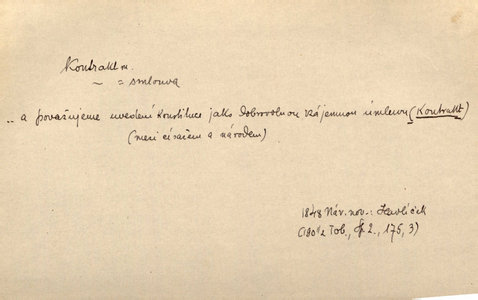 Kontrakt m.
~ = smlouva
.. a považujeme uvedení Konstituce jako dobrovolnou vzájemnou úmluvu (Kontrakt)
(mezi císařem a národem)
1848 Nár. nov.: Havlíček
Tob., 2., 175, 3)